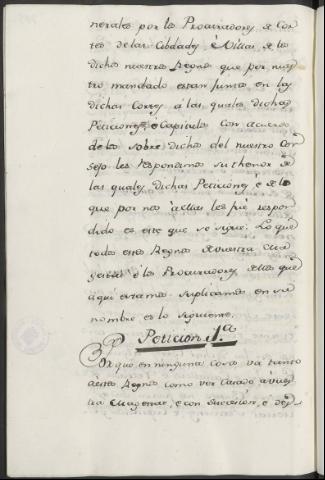 nerales por los Procuradores de Cor
tes de las Cibdades, è Villas de los
dichos nuestros Regnos que por nues
tro mandado estan juntos en las
dichas Cortes, á las quales dichas
Peticiones, e Capitulos con acuerdo
de los sobre dichos del nuestro Con
sejo les respondimos su thenor de
las quales dichas Peticiones, é de lo
que por nos à ellas les fué respon
dido es este que se sigue: Lo que
todos estos Regnos de vuestra
é los Procuradores dellos que
aqui estamos suplicamos en su
nombre es lo siguiente.
Peticion 1.a
Por que en ninguna cosa vá tanto
à estos Regnos como ver Casado à vues
tra e con sucesion, é